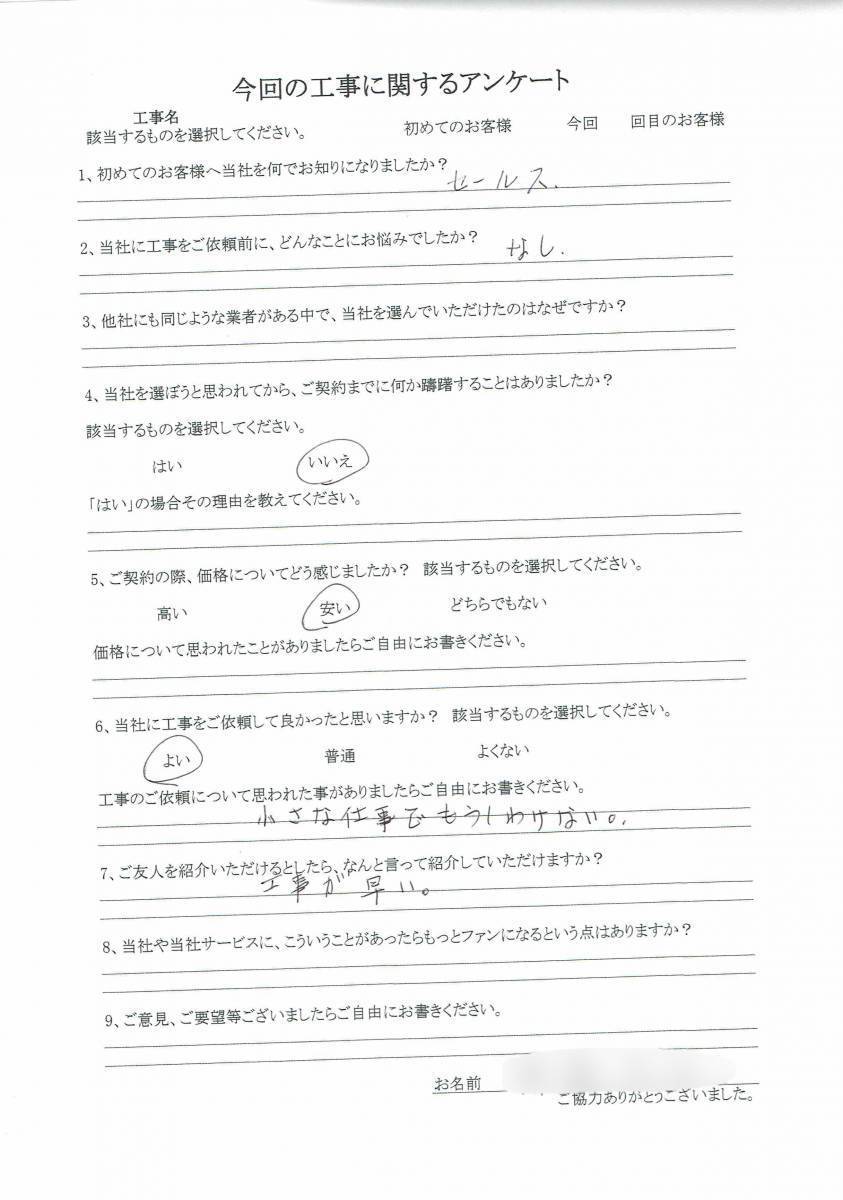 今回の工事に関するアンケート
工事名
該当するものを選択してください。　初めてのお客様　今回　回目のお客様
1、初めてのお客様へ当社を何でお知りになりましたか？
セールス.
2、当社に工事をご依頼前に、どんなことにお悩みでしたか？
なし.
3、他社にも同じような業者がある中で、当社を選んでいただけたのはなぜですか？
4、当社を選ぼうと思われてから、ご契約までに何か躊躇することはありましたか？
該当するものを選択してください。
はい　いいえ
「はい」の場合その理由を教えてください。
5、ご契約の際、価格についてどう感じましたか？　該当するものを選択してください。
高い　安い　どちらでもない
価格について思われたことがありましたらご自由にお書きください。
6、当社に工事をご依頼して良かったと思いますか？　該当するものを選択してください。
よい　普通　よくない
工事のご依頼について思われた事がありましたらご自由にお書きください。
小さな仕事でもうしわけない。
7、ご友人を紹介いただけるとしたら、なんと言って紹介していただけますか？
工事が早い。
8、当社や当社サービスに、こういうことがあったらもっとファンになるという点はありますか？
9、ご意見、ご要望等ございましたらご自由にお書きください。
お名前
ご協力ありがとうございました。